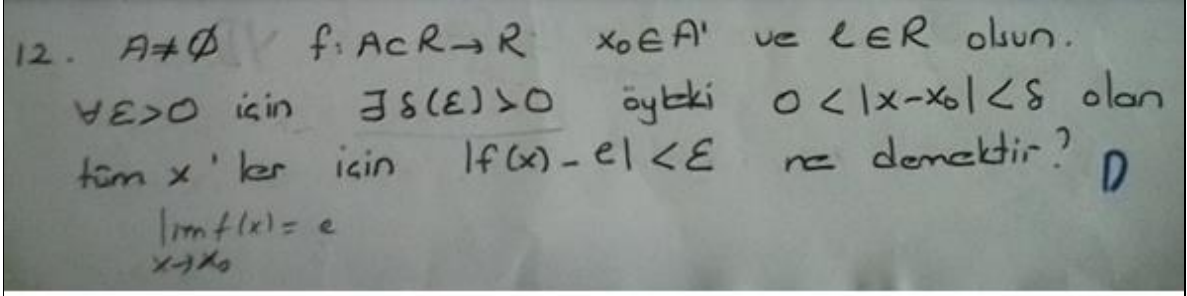 12. A≠∅ f: A⊂R→R x₀∈A' ve ℓ∈R olsun.
∀ε>0 için ∃δ(ε)>0 öyleki 0<|x-x₀|<δ olan
tüm x'ler için |f(x)-ℓ|<ε ne demektir? D
lim f(x) = ℓ
x→x₀